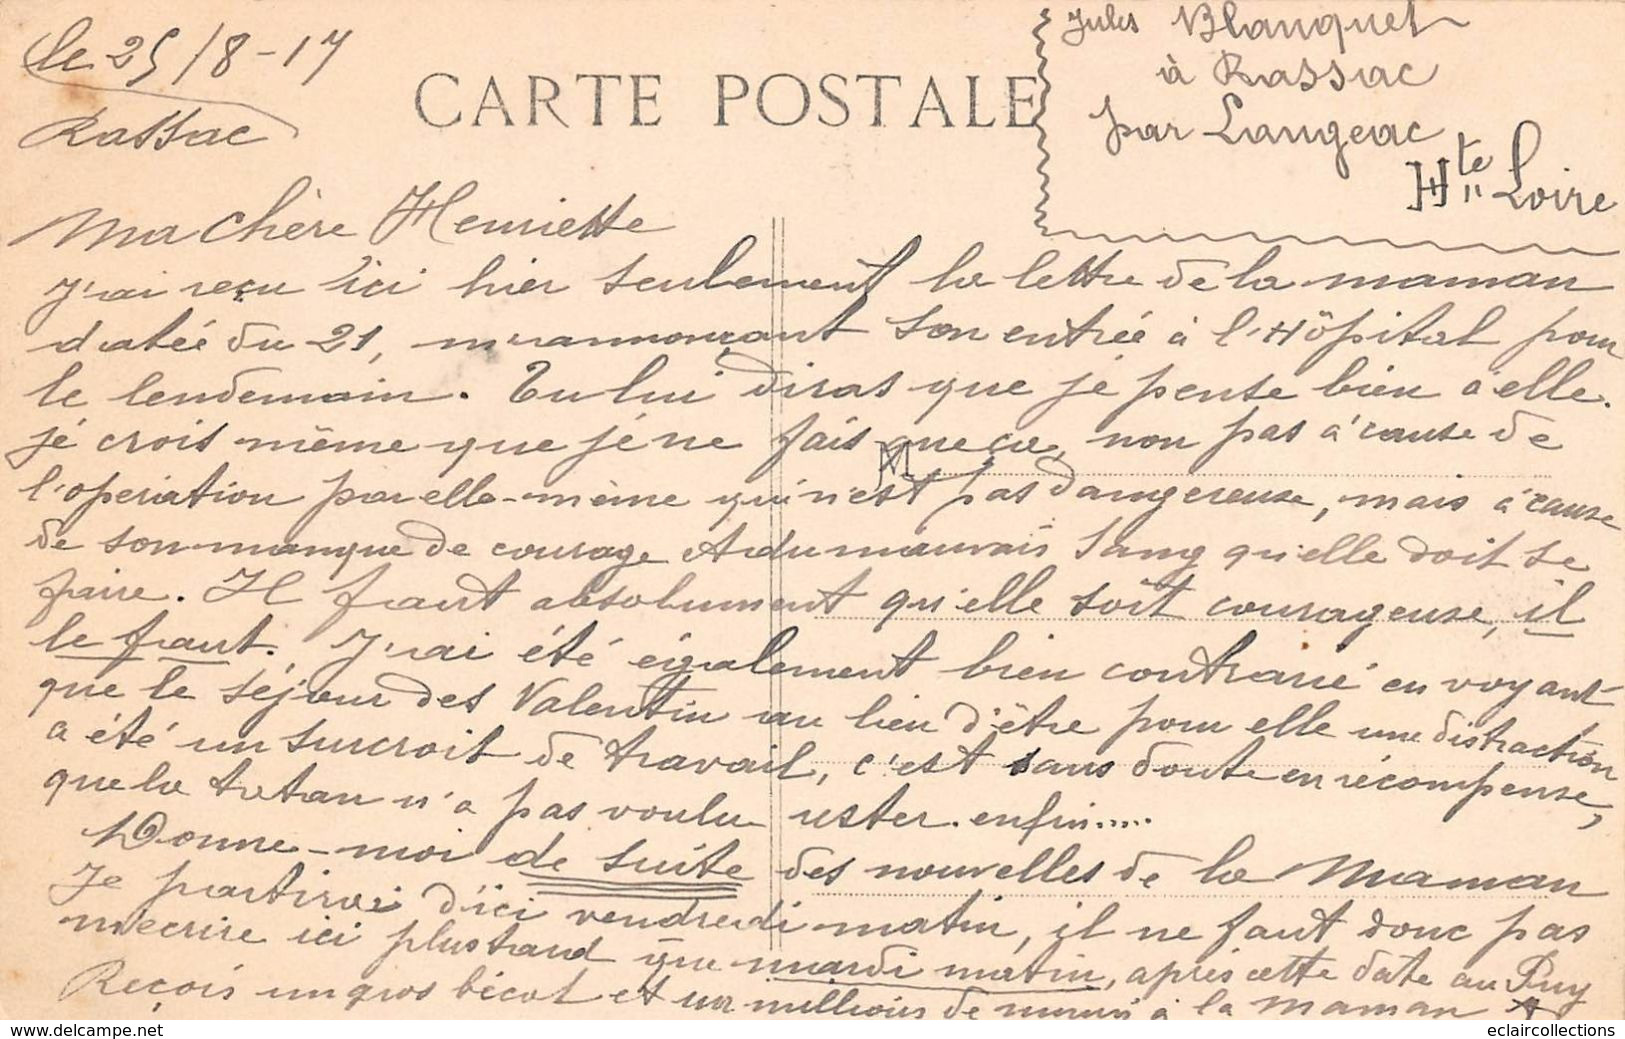 le 25/8-17
Rassac
CARTE POSTALE
Jules Blanquet
à Rassac
par Langeac
Hte Loire
Ma chère Henriette
J'ai reçu ici hier seulement la lettre de la maman
datée du 21, m'annonçant son entrée à l'Hôpital pour
le lendemain. Tu lui diras que je pense bien à elle.
je crois même que je ne fais que ça, non pas à cause de
M
l'operation par elle-même qui n'est pas dangereuse, mais à cause
de son manque de courage et du mauvais sang qu'elle doit se
faire. Il faut absolument qu'elle soit courageuse, il
le faut. J'ai été également bien contrarié en voyant
que le séjour des Valentin au lieu d'être pour elle une distraction
a été un surcroit de travail, c'est sans doute en récompense,
que la tatan n'a pas voulu rester. enfin.....
Donne-moi de suite des nouvelles de la Maman
Je partirai d'ici vendredi matin, il ne faut donc pas
m'ecrire ici plus tard que mardi matin, après cette date au Puy
Reçois un gros bécot et un millions de mimis à la maman
eclaircollections